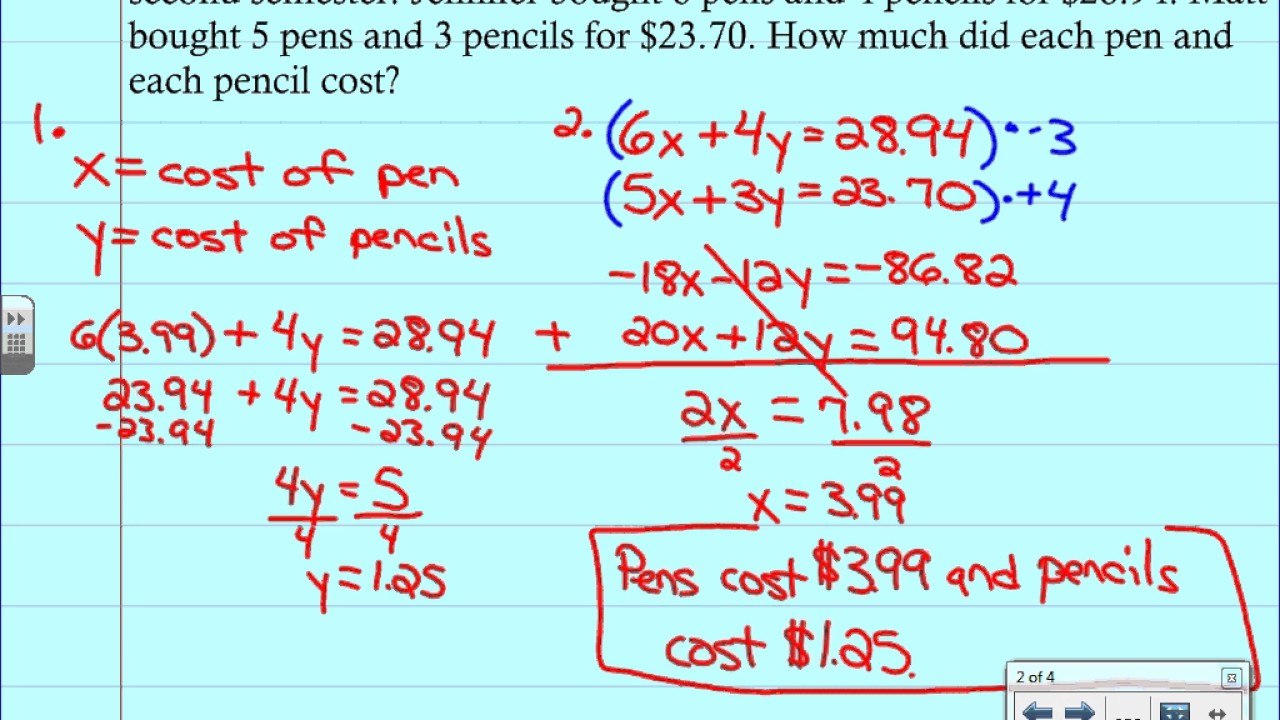 bought 5 pens and 3 pencils for $23.70. How much did each pen and
each pencil cost?
1.
x = cost of pen
y = cost of pencils
6(3.99) + 4y = 28.94
23.94 + 4y = 28.94
-23.94 -23.94
4y = 5
4 4
y = 1.25
2. (6x + 4y = 28.94) · -3
(5x + 3y = 23.70) · +4
-18x - 12y = -86.82
+ 20x + 12y = 94.80
2x = 7.98
2 2
x = 3.99
Pens cost $3.99 and pencils
cost $1.25.
2 of 4